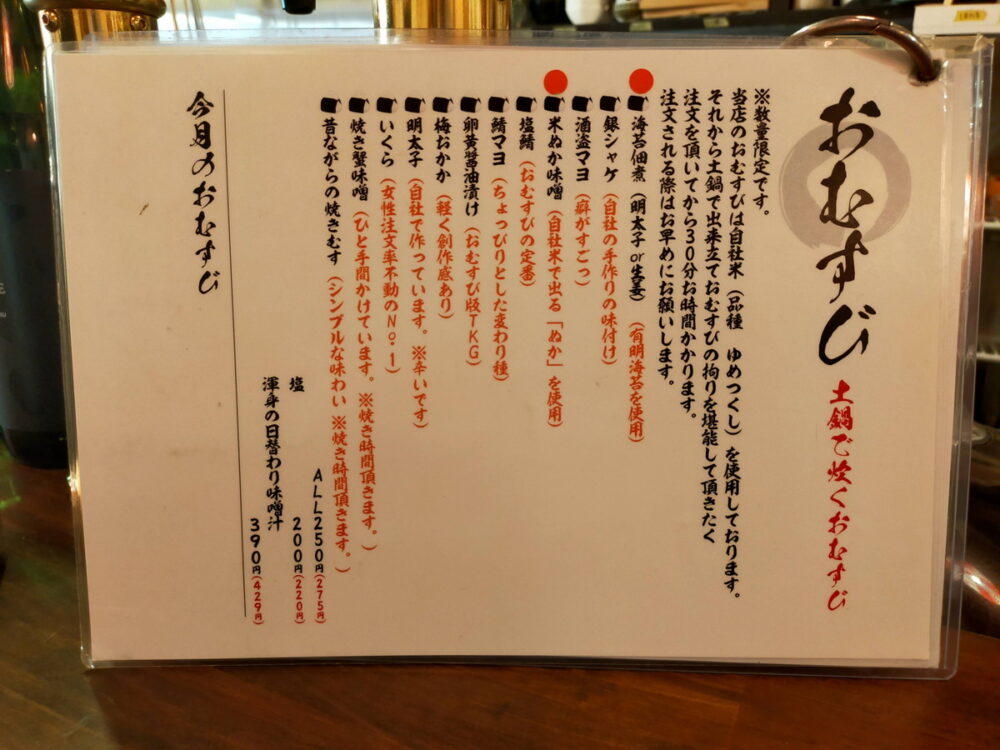 おむすび 土鍋で炊くおむすび
※数量限定です。
当店のおむすびは自社米（品種 ゆめつくし）を使用しております。
それから土鍋で出来立ておむすびの拘りを堪能して頂きたく
注文を頂いてから30分お時間かかります。
注文される際はお早めにお願いします。
海苔佃煮（明太子or生姜）（有明海苔を使用）
銀シャケ（自社の手作りの味付け）
酒盗マヨ（癖がすごっ）
米ぬか味噌（自社米で出る「ぬか」を使用）
塩鯖（おむすびの定番）
鯖マヨ（ちょっぴりとした変わり種）
卵黄醤油漬け（おむすび版TKG）
梅おかか（軽く創作感あり）
明太子（自社で作っています。※辛いです）
いくら（女性注文率不動のNo.1）
焼き蟹味噌（ひと手間かけています。※焼き時間頂きます。）
昔ながらの焼きむす（シンプルな味わい ※焼き時間頂きます。）
ALL250円（275円）
塩 200円（220円）
渾身の日替わり味噌汁 390円（429円）
今月のおむすび